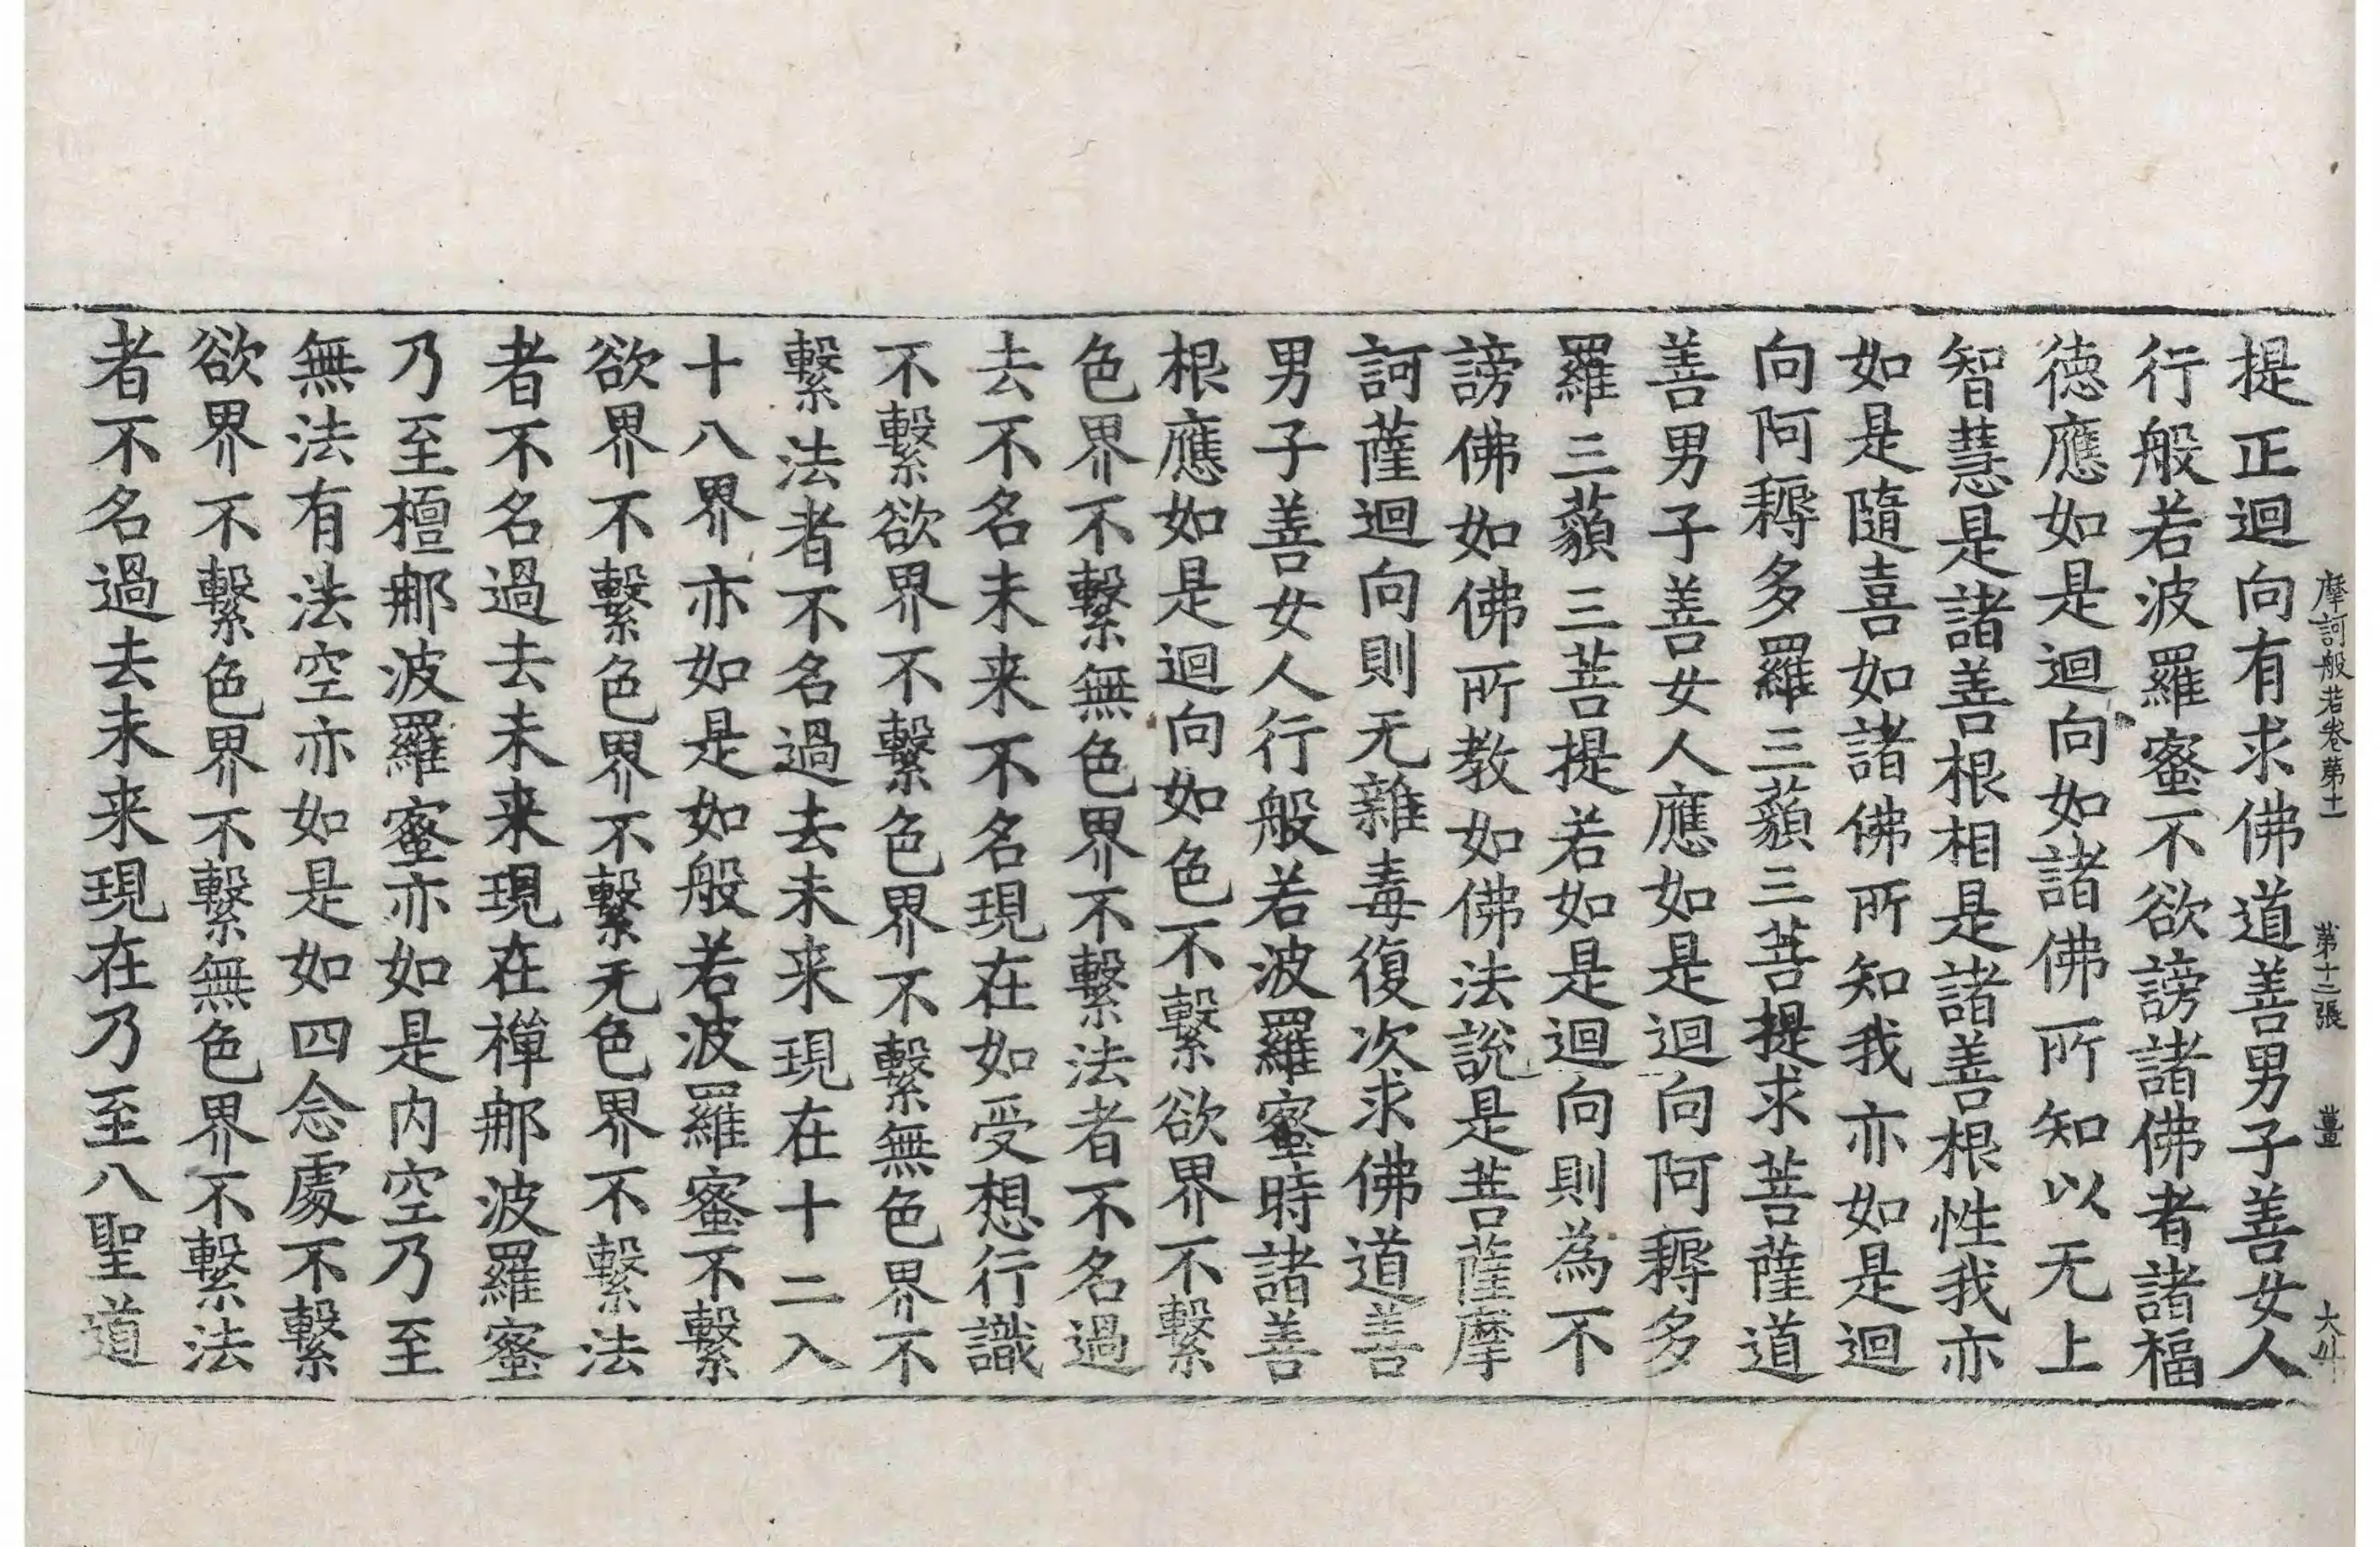 摩訶般若卷第十一 第十二張 萋 大斗
提正迴向有求佛道善男子善女人
行般若波羅蜜不欲謗諸佛者諸福
德應如是迴向如諸佛所知以无上
智慧是諸善根相是諸善根性我亦
如是隨喜如諸佛所知我亦如是迴
向阿耨多羅三藐三菩提求菩薩道
善男子善女人應如是迴向阿耨多
羅三藐三菩提若如是迴向則為不
謗佛如佛所教如佛法說是菩薩摩
訶薩迴向則无雜毒復次求佛道善
男子善女人行般若波羅蜜時諸善
根應如是迴向如色不繫欲界不繫
色界不繫無色界不繫法者不名過
去不名未来不名現在如受想行識
不繫欲界不繫色界不繫無色界不
繫法者不名過去未来現在十二入
十八界亦如是如般若波羅蜜不繫
欲界不繫色界不繫无色界不繫法
者不名過去未来現在禅那波羅蜜
乃至檀那波羅蜜亦如是内空乃至
無法有法空亦如是如四念處不繫
欲界不繫色界不繫無色界不繫法
者不名過去未来現在乃至八聖道